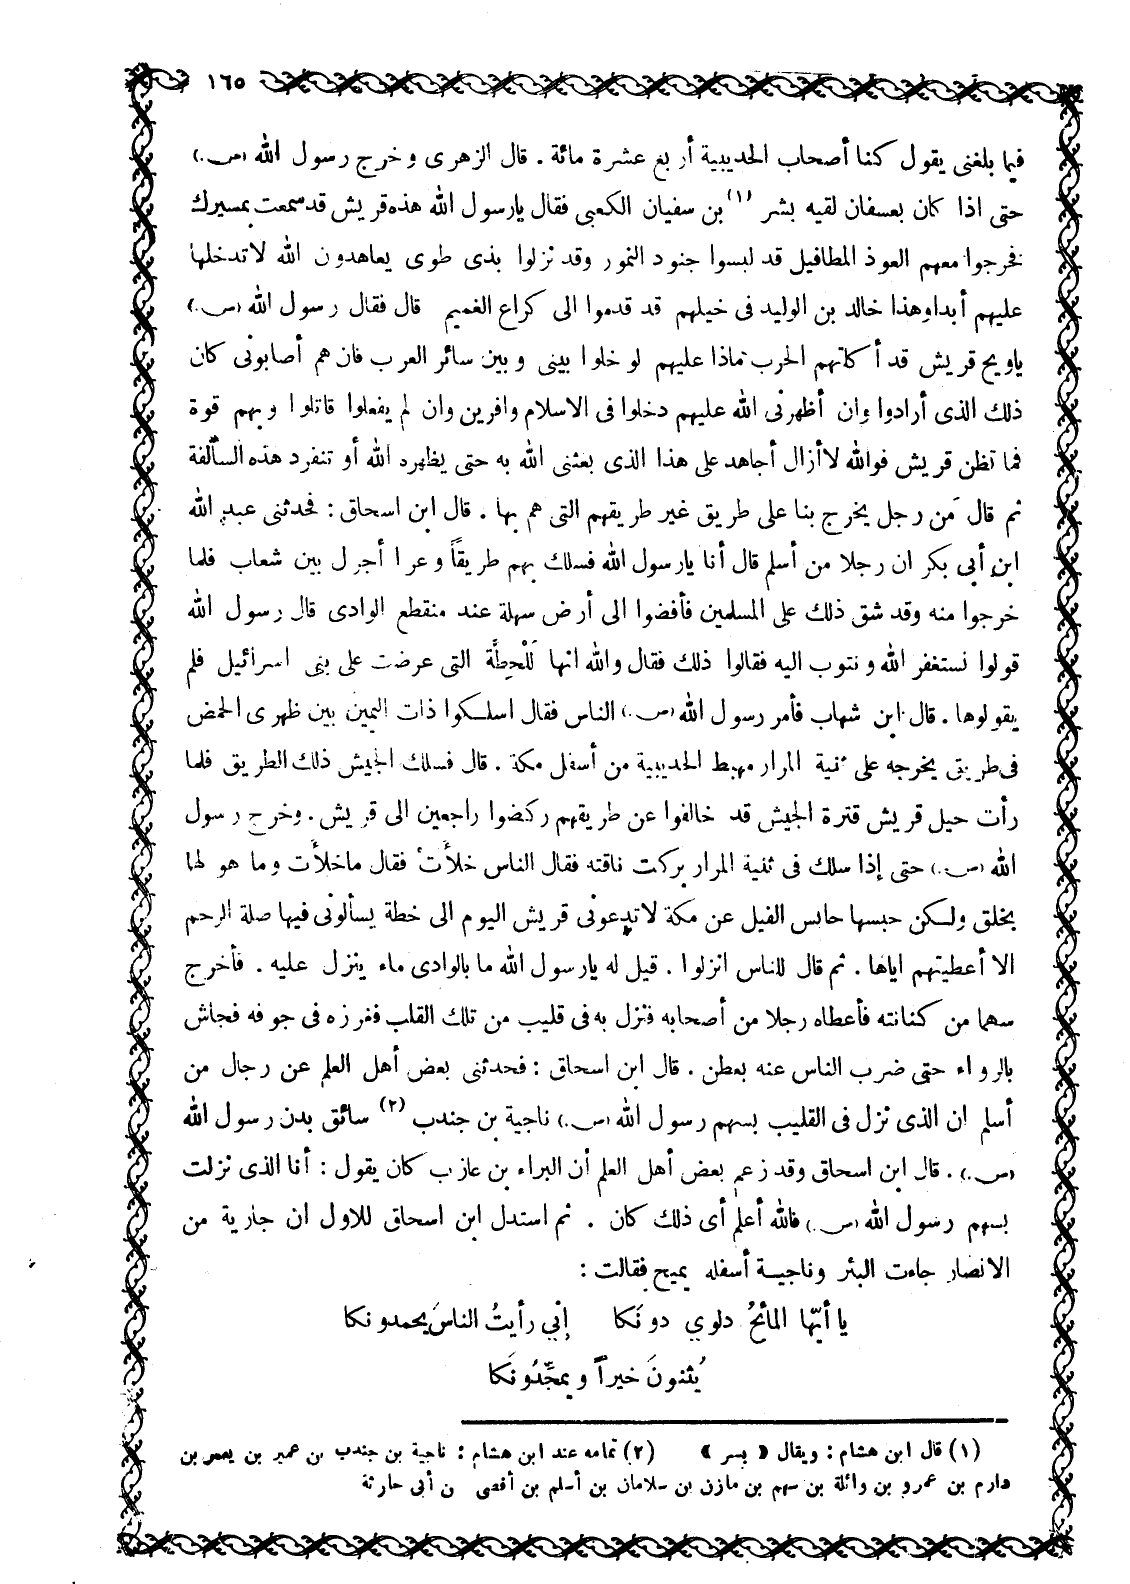 ١٦٥
فيما بلغنى يقول كنا أصحاب الحديبية أربع عشرة مائة . قال الزهرى وخرج رسول الله (ص.)
حتى اذا كان بعسفان لقيه بشر (١) بن سفيان الكعبى فقال يارسول الله هذه قريش قد سمعت بمسيرك
فخرجوا معهم العوذ المطافيل قد لبسوا جنود النمور وقد نزلوا بذى طوى يعاهدون الله لا تدخلها
عليهم أبدا وهذا خالد بن الوليد فى خيلهم قد قدموا الى كراع الغميم قال فقال رسول الله (ص.)
ياويح قريش قد أكلتهم الحرب ماذا عليهم لو خلوا بينى وبين سائر العرب فان هم أصابونى كان
ذلك الذى أرادوا وان أظهرنى الله عليهم دخلوا فى الاسلام وافرين وان لم يفعلوا قاتلوا وبهم قوة
فما تظن قريش فوالله لا أزال أجاهد على هذا الذى بعثنى الله به حتى يظهره الله أو تنفرد هذه السالفة
ثم قال مَن رجل يخرج بنا على طريق غير طريقهم التى هم بها . قال ابن اسحاق : فحدثنى عبد الله
ابن أبى بكر ان رجلا من أسلم قال أنا يارسول الله فسلك بهم طريقاً وعرا أجرل بين شعاب فلما
خرجوا منه وقد شق ذلك على المسلمين فأفضوا الى أرض سهلة عند منقطع الوادى قال رسول الله
قولوا نستغفر الله ونتوب اليه فقالوا ذلك فقال والله انها لَلْحِطَّة التى عرضت على بنى اسرائيل فلم
يقولوها . قال ابن شهاب فأمر رسول الله (ص.) الناس فقال اسلكوا ذات اليمين بين ظهرى الحمض
فى طريق يخرجه على ثنية المرار مهبط الحديبية من أسفل مكة . قال فسلك الجيش ذلك الطريق فلما
رأت خيل قريش قترة الجيش قد خالفوا عن طريقهم ركضوا راجعين الى قريش . وخرج رسول
الله (ص.) حتى إذا سلك فى ثنية المرار بركت ناقته فقال الناس خلأت فقال ماخلأت وما هو لها
بخلق ولكن حبسها حابس الفيل عن مكة لا تدعونى قريش اليوم الى خطة يسألونى فيها صلة الرحم
الا أعطيتهم اياها . ثم قال للناس انزلوا . قيل له يارسول الله ما بالوادى ماء ينزل عليه . فأخرج
سهما من كنانته فأعطاه رجلا من أصحابه فنزل به فى قليب من تلك القلب فغرزه فى جوفه فجاش
بالرواء حتى ضرب الناس عنه بعطن . قال ابن اسحاق : فحدثنى بعض أهل العلم عن رجال من
أسلم ان الذى نزل فى القليب بسهم رسول الله (ص.) ناجية بن جندب (٢) سائق بدن رسول الله
(ص.) . قال ابن اسحاق وقد زعم بعض أهل العلم أن البراء بن عازب كان يقول : أنا الذى نزلت
بسهم رسول الله (ص.) فالله أعلم أى ذلك كان . ثم استدل ابن اسحاق للاول ان جارية من
الانصار جاءت البئر وناجية أسفله يميح فقالت :
يا أيّها المائحُ دلوي دونَكا إنّي رأيتُ الناسَ يحمدونكا
يُثنونَ خيراً ويمجّدُونَكا
(١) قال ابن هشام : ويقال « بسر » (٢) تمامه عند ابن هشام : ناجية بن جندب بن عمير بن يعمر بن
دارم بن عمرو بن وائلة بن سهم بن مازن بن سلامان بن أسلم بن أفصى بن أبى حارثة